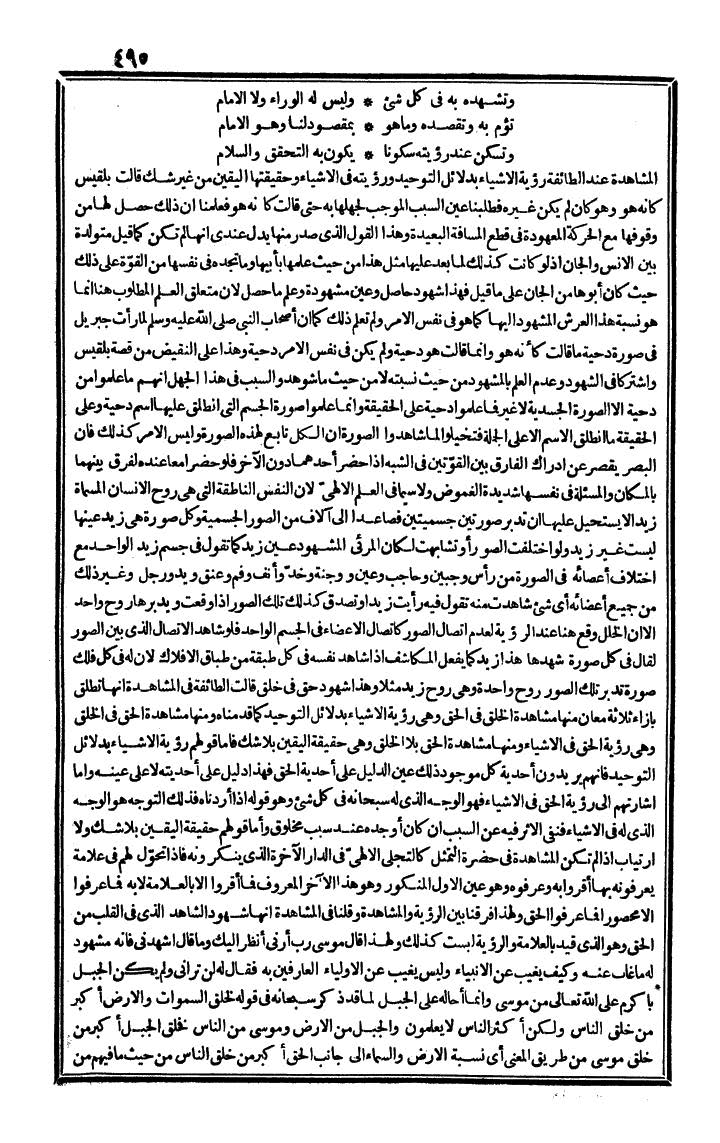 ٤٩٥
وتشهده به فى كل شئ * وليس له الوراء ولا الامام
تؤم به وتقصده وماهو * بمقصود لنا وهو الامام
وتسكن عند رؤيته سكونا * يكون به التحقق والسلام
المشاهدة عند الطائفة رؤية الاشياء بدلائل التوحيد ورؤيته فى الاشياء وحقيقتها اليقين من غير شك قالت بلقيس
كأنه هو وهو كان لم يكن غيره فطلبنا عين السبب الموجب لجهلها به حتى قالت كأنه هو فعلمنا ان ذلك حصل لها من
وقوفها مع الحركة المعهودة فى قطع المسافة البعيدة وهذا القول الذى صدر منها يدل عندى انها لم تكن كما قيل متولدة
بين الانس والجان اذ لو كانت كذلك لما بعد عليها مثل هذا من حيث علمها بأبيها وما تجده فى نفسها من القوة على ذلك
حيث كان أبوها من الجان على ما قيل فهذا شهود حاصل وعين مشهودة وعلم ما حصل لان متعلق العلم المطلوب هنا انما
هو نسبة هذا العرش المشهود اليها كما هو فى نفس الامر ولم تعلم ذلك كما ان أصحاب النبى صلى الله عليه وسلم لما رأت جبريل
فى صورة دحية ما قالت كأنه هو وانما قالت هو دحية ولم يكن فى نفس الامر دحية وهذا على النقيض من قصة بلقيس
واشتركا فى الشهود وعدم العلم بالمشهود من حيث نسبته لا من حيث ما شوهد والسبب فى هذا الجهل انهم ما علموا من
دحية الا الصورة الجسدية لا غير فما علموا دحية على الحقيقة وانما علموا صورة الجسم التى انطلق عليها اسم دحية وعلى
الحقيقة ما انطلق الاسم الا على الجلة فتخيلوا لما شاهدوا الصورة ان الكل تابع لهذه الصورة وليس الامر كذلك فان
البصر يقصر عن ادراك الفارق بين القوتين فى الشبه اذا حضر أحدهما دون الآخر فلو حضرا معا عنده لفرق بينهما
بالمكان والمسئلة فى نفسها شديدة الغموض ولا سيما فى العلم الالهى لان النفس الناطقة التى هى روح الانسان المسماة
زيد الا يستحيل عليها ان تدبر صورتين جسميتين فصاعدا الى آلاف من الصور الجسمية وكل صورة هى زيد عينها
ليست غير زيد ولو اختلفت الصور أو تشابهت لكان المرئى المشهود عين زيد كما تقول فى جسم زيد الواحد مع
اختلاف أعضائه فى الصورة من رأس وجبين وحاجب وعين ووجنة وخد وأنف وفم وعنق ويد ورجل وغير ذلك
من جميع أعضائه أى شئ شاهدت منه تقول فيه رأيت زيدا وتصدق كذلك تلك الصور اذا وقعت ويدبرها روح واحد
الا ان الخلل وقع هنا عند الرؤية لعدم اتصال الصور كاتصال الاعضاء فى الجسم الواحد فلو شاهد الاتصال الذى بين الصور
لقال فى كل صورة شهدها هذا زيد كما يفعل المكاشف اذا شاهد نفسه فى كل طبقة من طباق الافلاك لان له فى كل فلك
صورة تدبر تلك الصور روح واحدة وهى روح زيد مثلا وهذا شهود حق فى خلق قالت الطائفة فى المشاهدة انها تطلق
بازاء ثلاثة معان منها مشاهدة الخلق فى الحق وهى رؤية الاشياء بدلائل التوحيد كما قدمناه ومنها مشاهدة الحق فى الخلق
وهى رؤية الحق فى الاشياء ومنها مشاهدة الحق بلا الخلق وهى حقيقة اليقين بلا شك فاما قولهم رؤية الاشياء بدلائل
التوحيد فانهم يريدون أحدية كل موجود ذلك عين الدليل على أحدية الحق فهذا دليل على أحديته لا على عينه واما
اشارتهم الى رؤية الحق فى الاشياء فهو الوجه الذى له سبحانه فى كل شئ وهو قوله اذا أردناه فذلك التوجه هو الوجه
الذى له فى الاشياء فنفى الاثر فيه عن السبب ان كان أوجده عند سبب مخلوق وأما قولهم حقيقة اليقين بلا شك ولا
ارتياب اذا لم تكن المشاهدة فى حضرة التمثل كالتجلى الالهى فى الدار الآخرة الذى ينكرونه فاذا تحول لهم فى علامة
يعرفونه بها أقروا به وعرفوه وهو عين الاول المنكور وهو هذا الآخر المعروف فما أقروا الا بالعلامة لا به فما عرفوا
الا محصورا فما عرفوا الحق ولهذا فرقنا بين الرؤية والمشاهدة وقلنا فى المشاهدة انها شهود الشاهد الذى فى القلب من
الحق وهو الذى قيد بالعلامة والرؤية ليست كذلك ولهذا قال موسى رب أرنى أنظر اليك وما قال اشهدنى فانه مشهود
له ما غاب عنه وكيف يغيب عن الانبياء وليس يغيب عن الاولياء العارفين به فقال له لن ترانى ولم يكن الجبل
باكرم على الله تعالى من موسى وانما أحاله على الجبل لما قد ذكر سبحانه فى قوله لخلق السموات والارض أكبر
من خلق الناس ولكن أكثر الناس لا يعلمون والجبل من الارض وموسى من الناس فخلق الجبل أكبر من
خلق موسى من طريق المعنى أى نسبة الارض والسماء الى جانب الحق أكبر من خلق الناس من حيث ما فيهم من